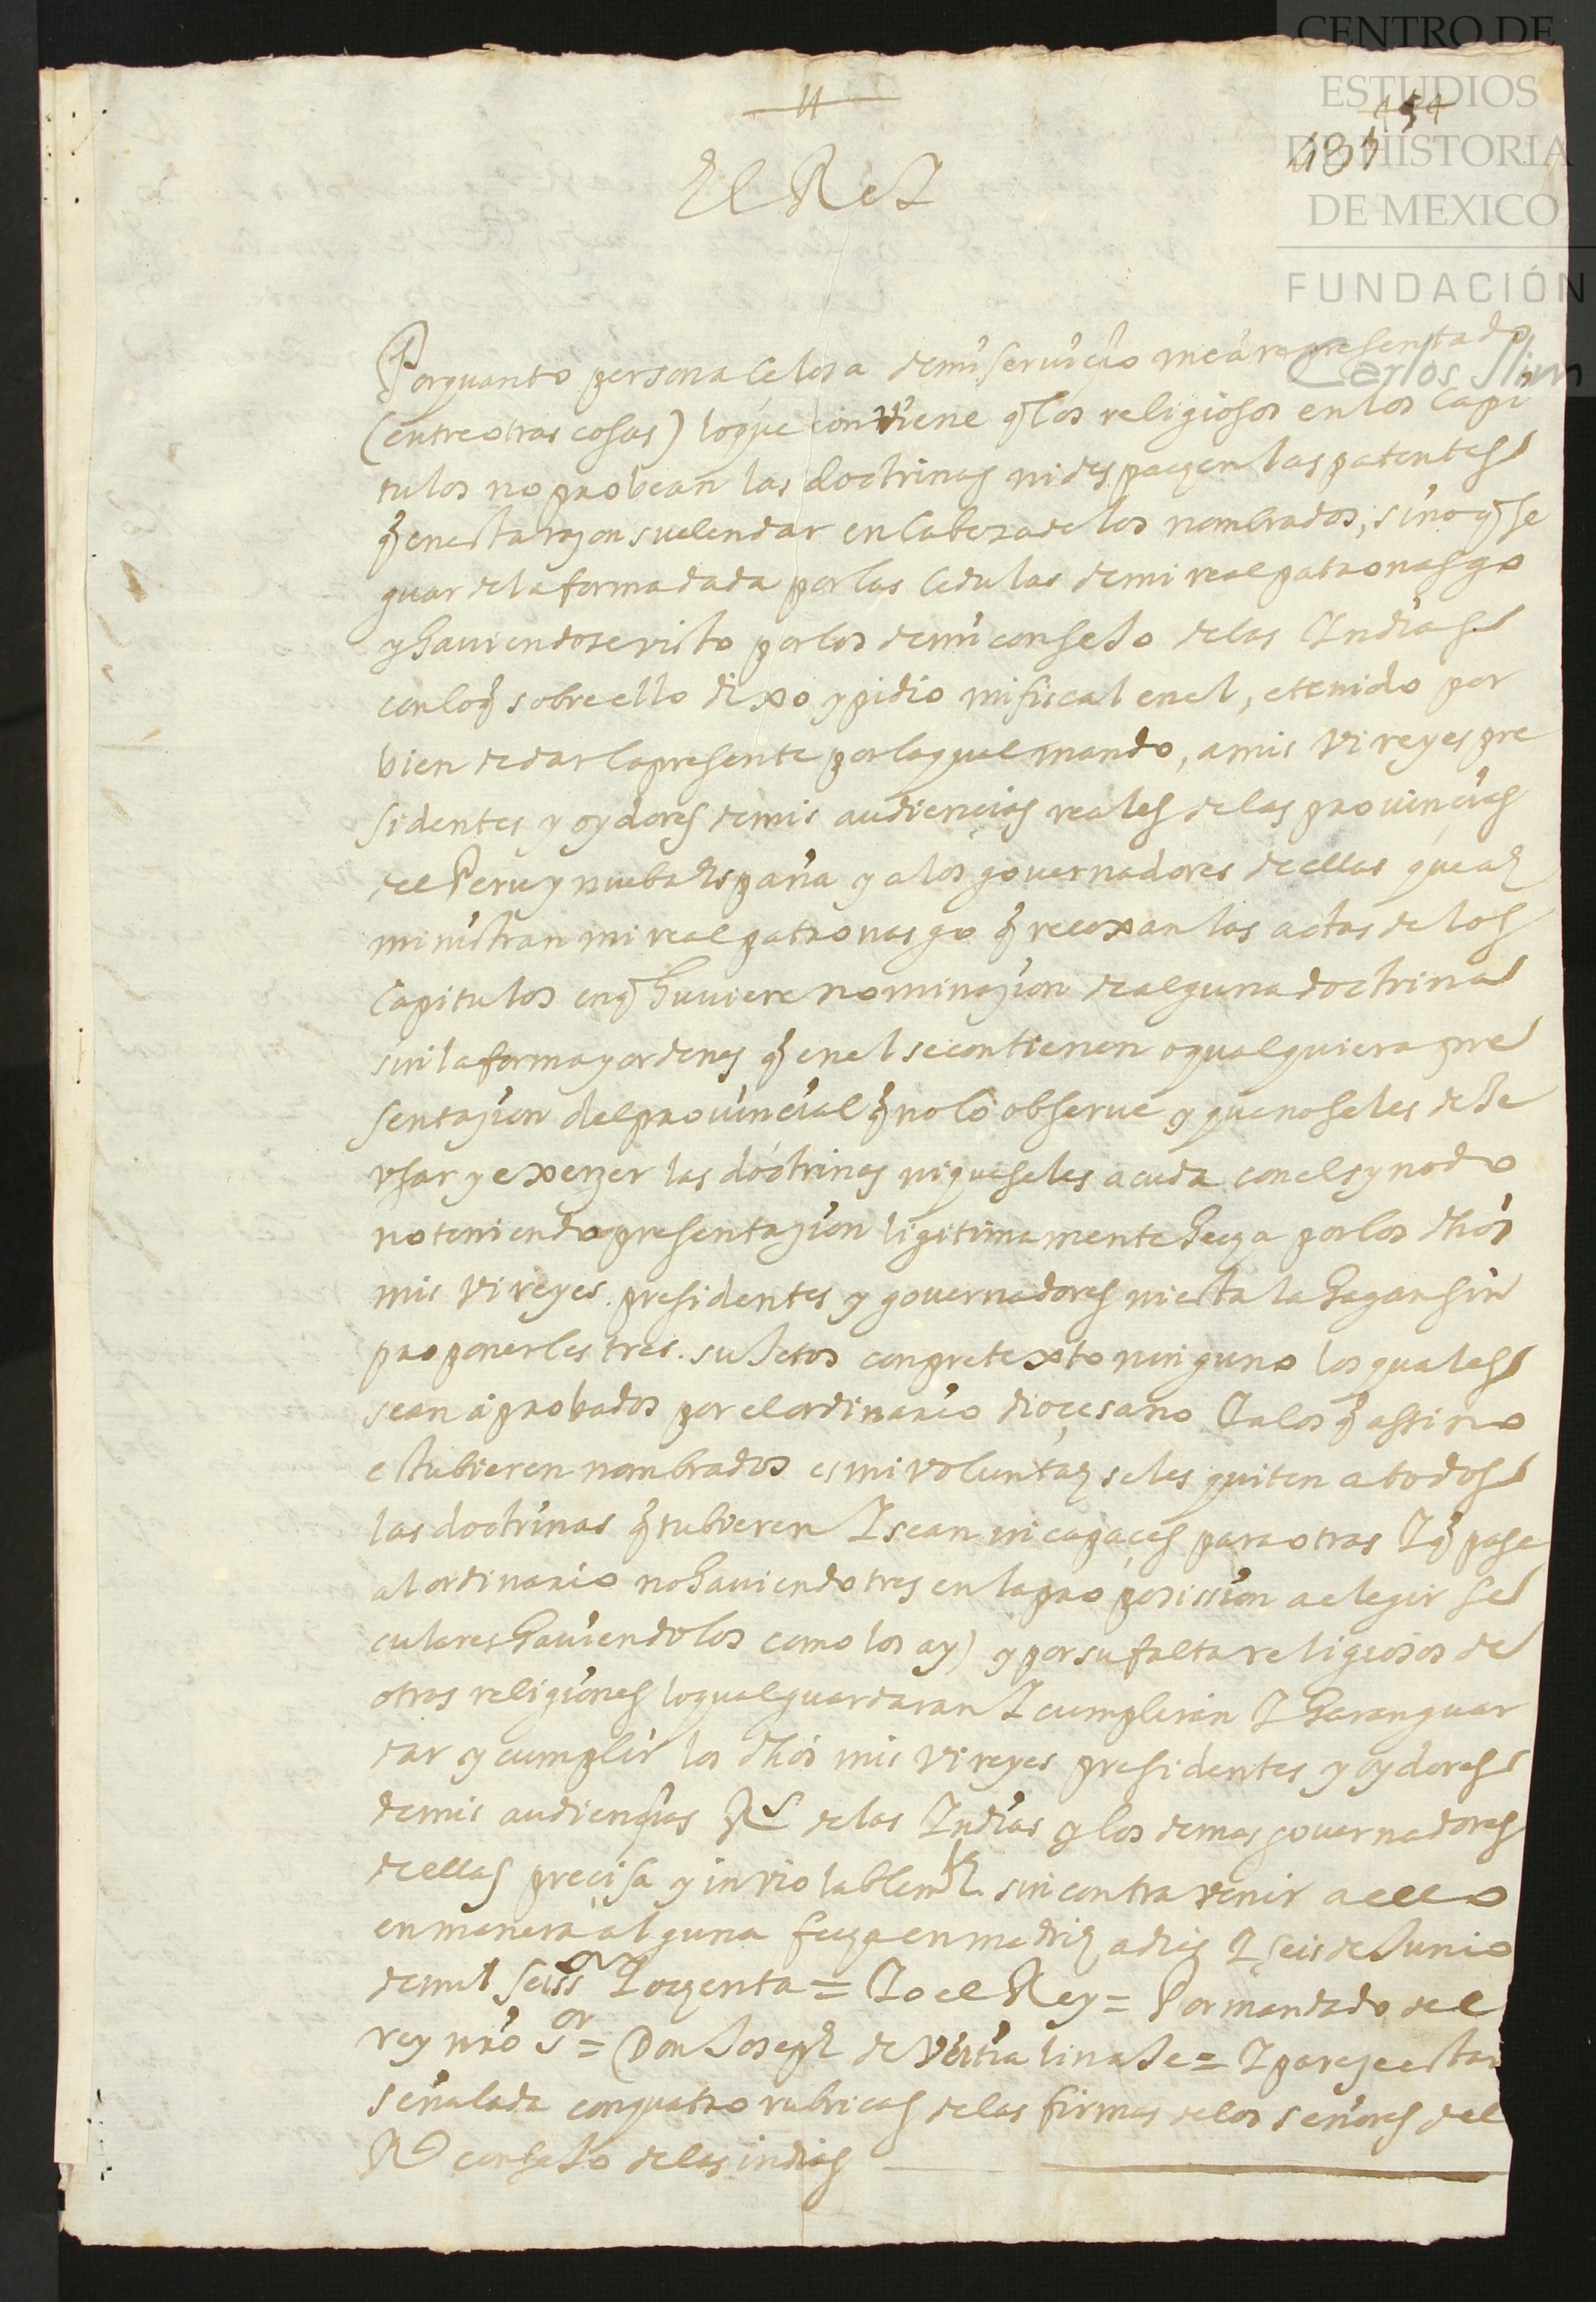 CENTRO DE
ESTUDIOS
DE HISTORIA
DE MEXICO
FUNDACIÓN
Carlos Slim
454
484
El ReI
Porquanto persona çelosa demi seruiçio mea representado
(entre otras cosas) loque conviene q̃ los religiosos en los Capi
tulos no probean las doctrinas ni despachen las patentes
q̃ en esta razon suelen dar en Cabeza de los nombrados, sino q̃ se
guarde la forma dada por las Cedulas de mi real patronasgo
y haviendose visto por los de mi conseJo de las Indias
con loq̃ sobre ello dixo y pidio mi fiscal en el, e tenido por
bien de dar la presente por la qual mando, a mis Vireyes pre
sidentes y oydores de mis audiençias reales de las provinçias
del Peru y nueba España y a los governadores de ellas que ad
ministran mi real patronasgo q̃ recoxan las actas de los
Capitulos en q̃ huviere nominazion de alguna doctrina
sin la forma y ordenes q̃ en el se contienen o qualquiera pre
sentazion del provincial q̃ no lo observe y que no se les dexe
vsar y exerzer las doctrinas ni que se les acuda con el synodo
no teniendo presentazion ligitimamente hecha por los dhõs
mis Vireyes presidentes y governadores ni esta la hagan sin
proponerles tres suJetos con pretexto ninguno los quales
sean aprobados por el ordinario dioçesano I a los q̃ assi no
estubieren nombrados es mi voluntad se les quiten a todos
las doctrinas q̃ tubieren I sean incapaçes para otras I q̃ pase
al ordinario no haviendo tres en la proposission a elegir se
culares haviendolos como los ay) y por su falta religiosos de
otras religiones lo qual guardaran I cumpliran I haran guar
dar y cumplir los dhõs mis Vireyes presidentes y oydores
de mis audiençias Rs de las Indias y los demas governadores
de ellas preçisa y inviolablemte sin contravenir a ello
en manera alguna fecha en madrid a diez I seis de Junio
de mil seissos I ochenta = Io el Rey = Por mandado del
rey nrõ Sor = Don Joseph de Veitia linaJe = I pareze estar
señalada con quatro rubricas de las firmas de los señores del
Rl conseJo de las indias